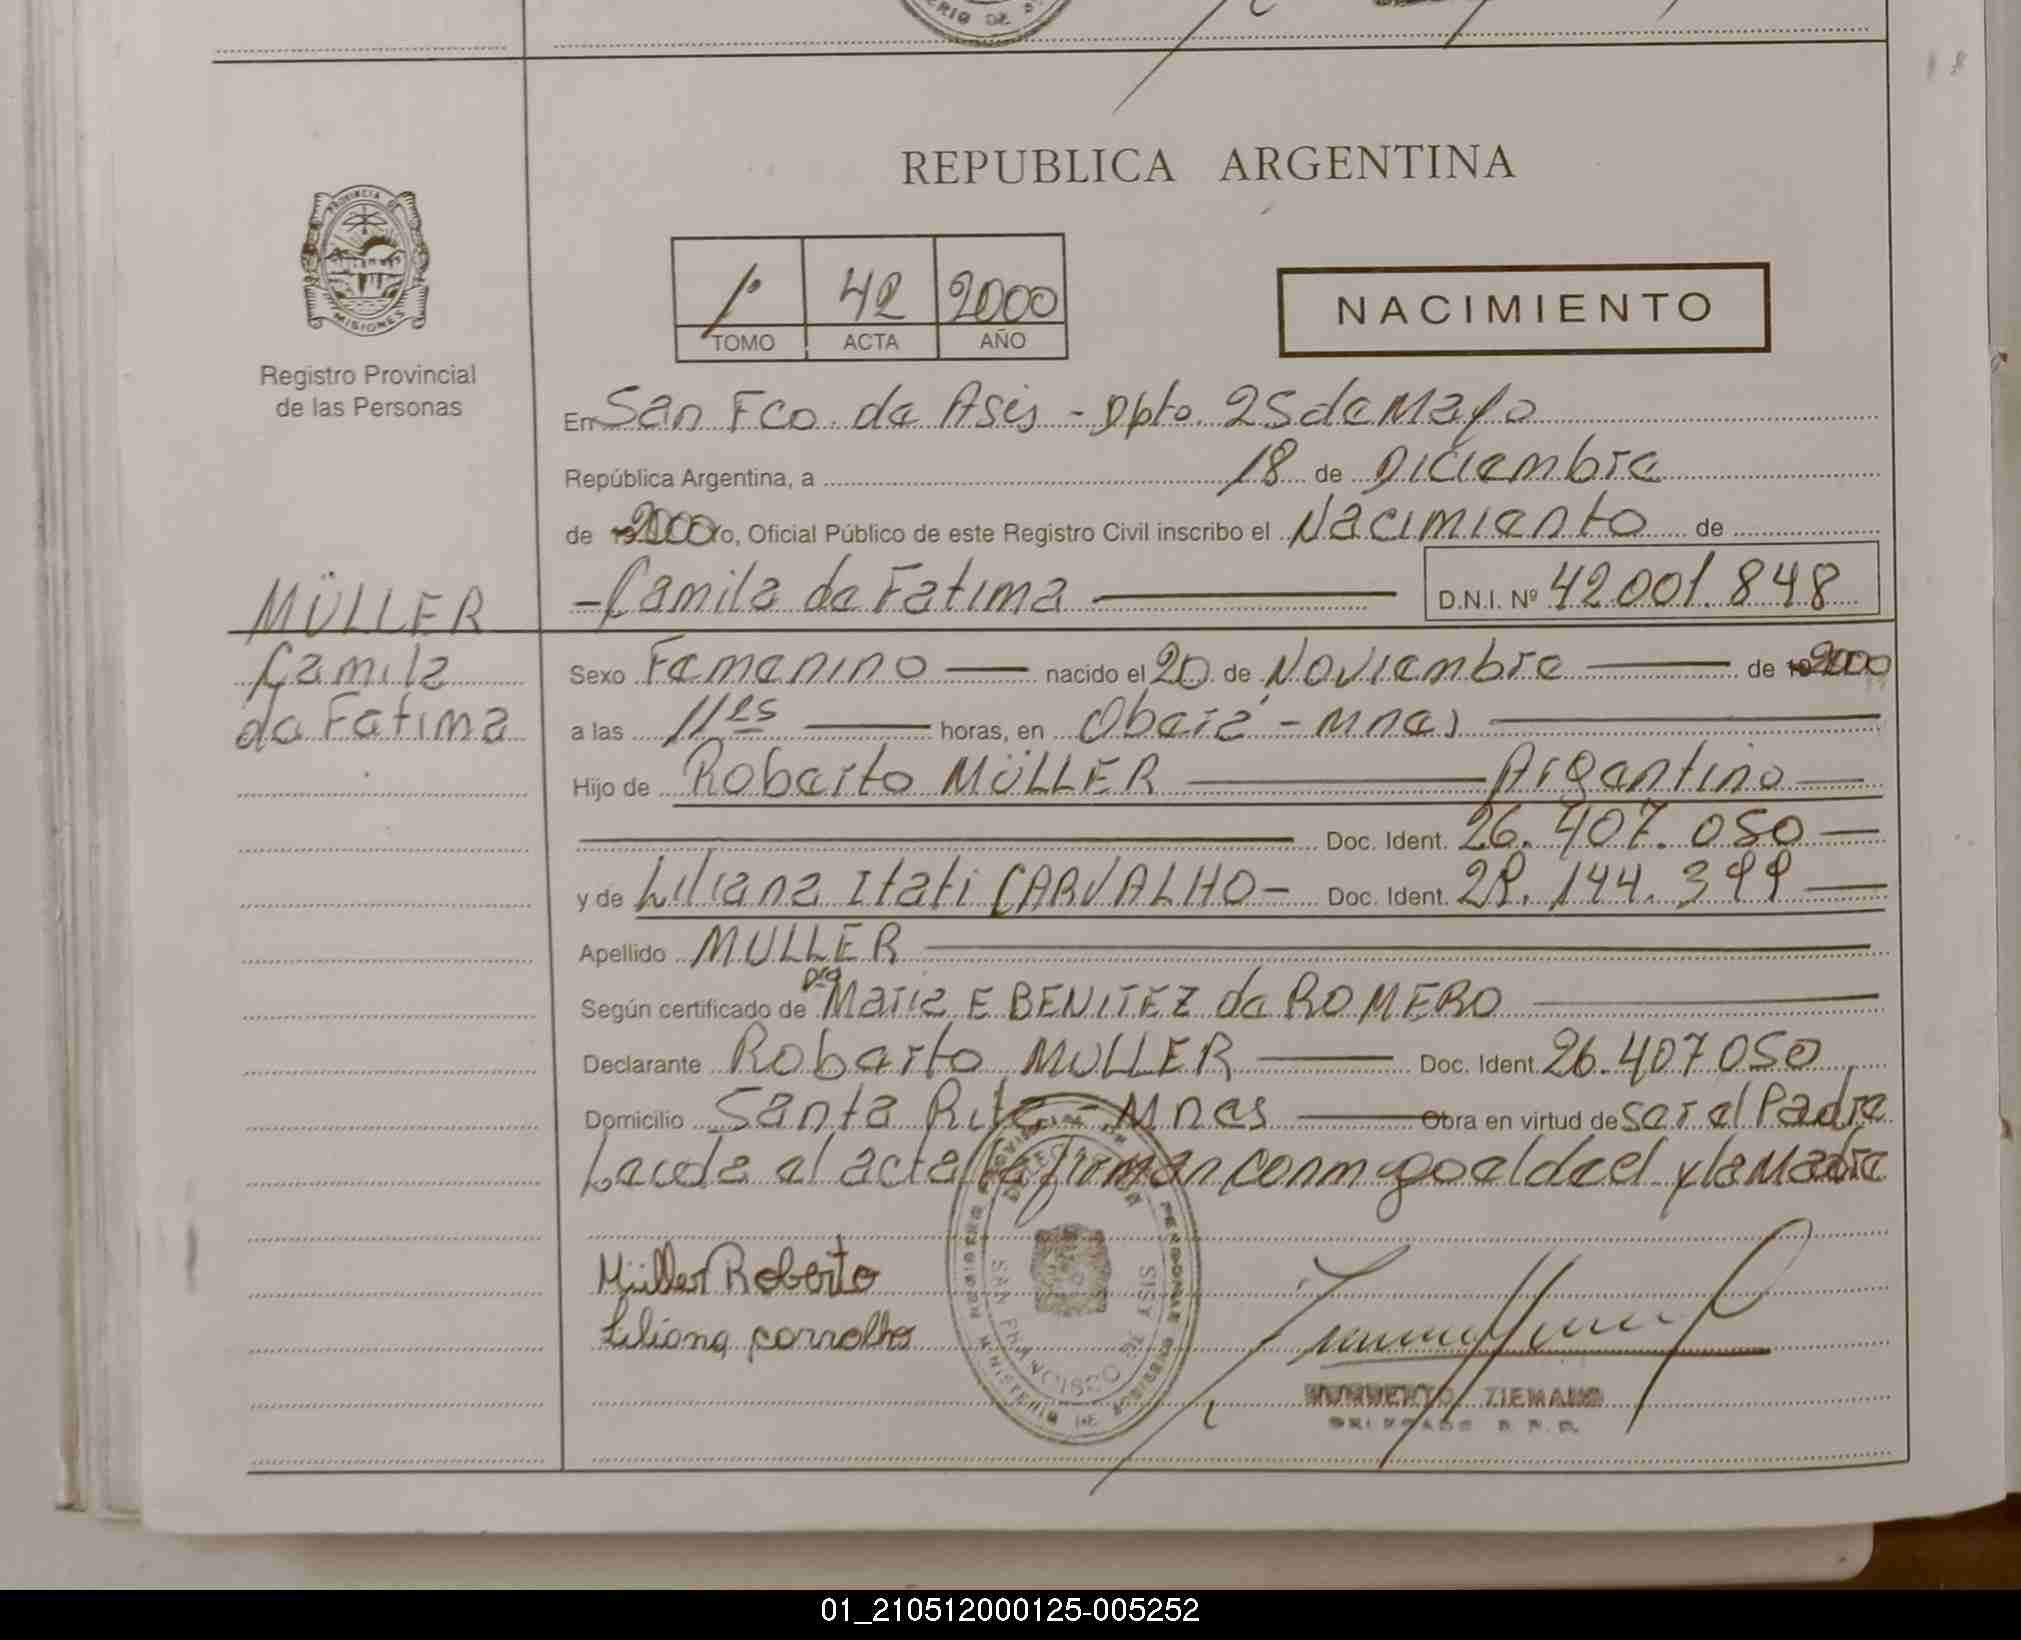 REPUBLICA ARGENTINA
PROVINCIA DE
MISIONES
Registro Provincial
de las Personas
1º 42 2000
TOMO ACTA AÑO
NACIMIENTO
En San Fco. de Asis - Dpto. 25 de Mayo
República Argentina, a 18 de Diciembre
de 2000 yo, Oficial Público de este Registro Civil inscribo el Nacimiento de
- Camila de Fatima D.N.I. Nº 42.001.848
MÜLLER
Camila
de Fatima
Sexo Femenino nacido el 20 de Noviembre de 2000
a las 11 hs horas, en Oberá - Mnes
Hijo de Roberto MÜLLER Argentino
Doc. Ident. 26.407.050
y de Liliana Itati CARVALHO - Doc. Ident. 28.144.399
Apellido MULLER
Según certificado de Dra Maria E BENITEZ de ROMERO
Declarante Roberto MULLER Doc. Ident. 26.407050
Domicilio Santa Rita - Mnes Obra en virtud de ser el Padre
el acta la firman conmigo el y la Madre
Müller Roberto
Liliana carvalho
SAN FRANCISCO
MINISTERIO DE
ZIEMANN
01_210512000125-005252